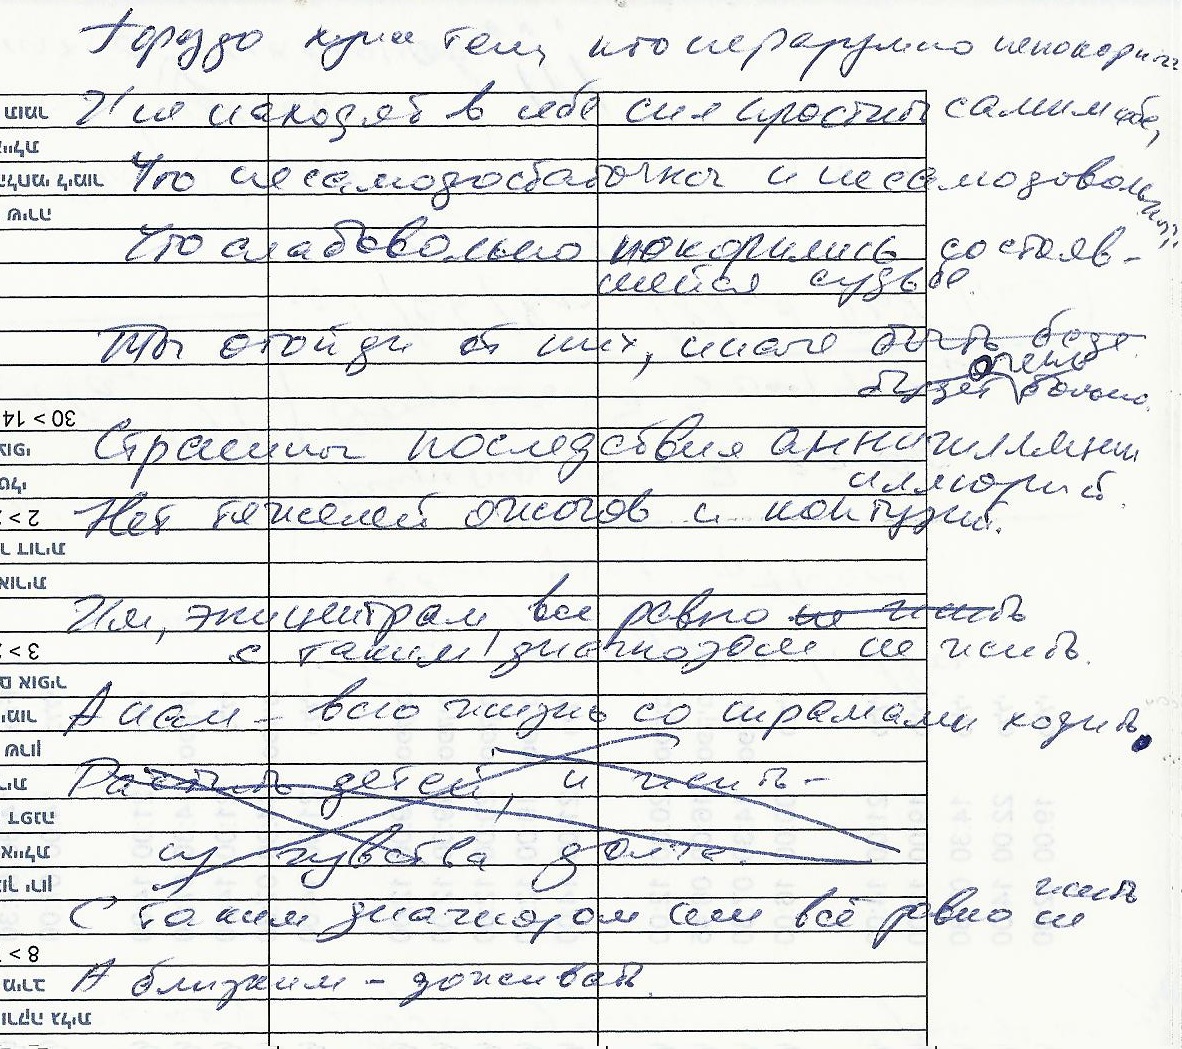 Гораздо хуже тем, кто неразумно непокорны
И не находят в себе сил простить самим себе,
Что несамодостаточны и несамодовольны
Что слабовольно покорились состояв-
шейся судьбе
Ты отойди от них, иначе быть беде
будет очень больно.
Страшны последствия аннигиляции
иллюзий.
Нет тяжелей ожогов и контузий.
Им, эпицентрам, все равно не жить
с таким диагнозом не жить.
А нам – всю жизнь со шрамами ходить,
Растить детей, и жить –
из чувства долга.
С таким диагнозом им всё равно не жить
А близким – доживать.
30 > 14
2 >
3 >
8 >